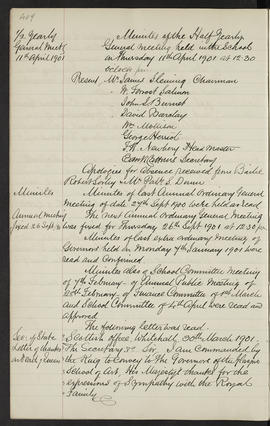 409
½ Yearly
General Meetg
11th April 1901
Minutes of the Half Yearly
General Meeting held in the Schools
on Thursday 11th April 1901 at 12.30
o'clock pm.
Present Mr James Fleming Chairman
W. Forrest Salmon
John J Burnet
David Barclay
Wm Mollison
George Herriot
F. H. Newbery Head Master
Secretary
Apologies for absence received from Bailie
Robert Sorley & Mr Robt. S. Dunn
Minutes
Minutes of last Annual Ordinary General
Meeting of date 27th Sept 1900 were held as read.
Annual Meeting
fixed 26 Sept
The next Annual Ordinary General Meeting
was fixed for Thursday 26th Sept 1901 at 12.30 pm
Minutes of last extra ordinary Meeting of
Governors held on Monday 7th January 1901 were
read and confirmed.
Minutes also of School Committee Meeting
of 7th February - of Annual Public Meeting of
20th February, of Finance Committee of 1st March
and School Committee of 4th April were read and
approved
The following letter was read
Sec. of State
Letter of thanks
Scottish Office, Whitehall, 30th March 1901.
The Secretary Sir. I am Commanded by
the King to Convey to the Governors of the Glasgow
School of Art, His Majestys thanks for the
expressions of Sympathy with the Royal
Family